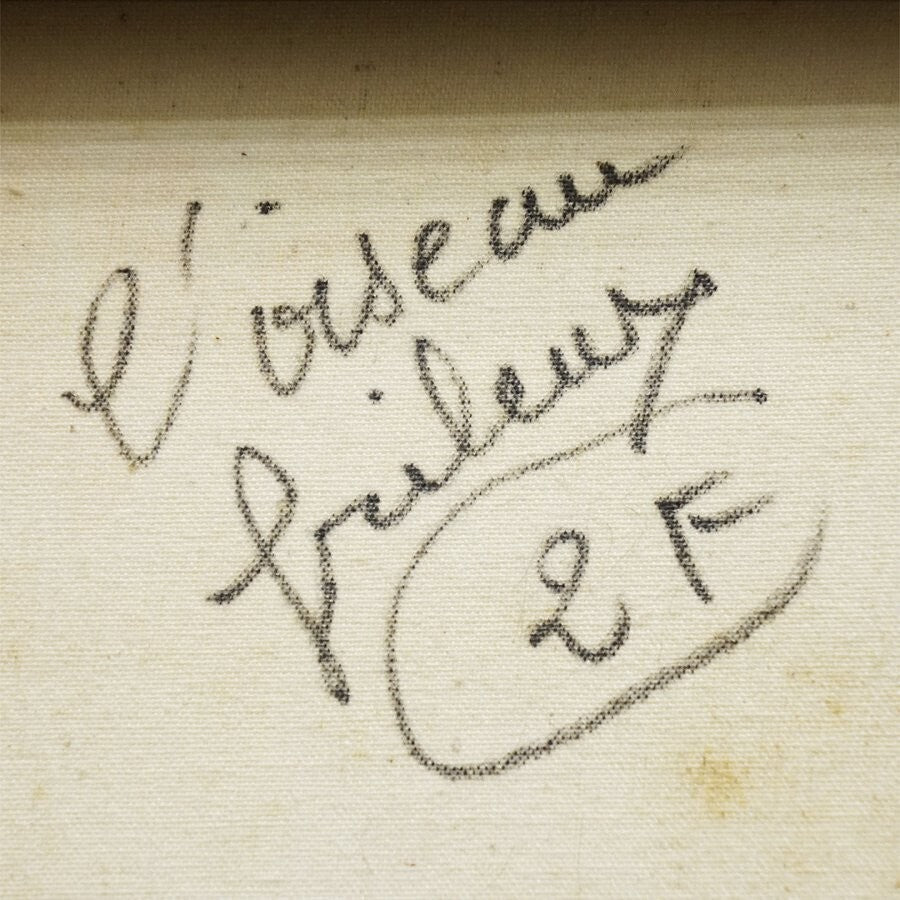 l'oiseau
frileux
2F